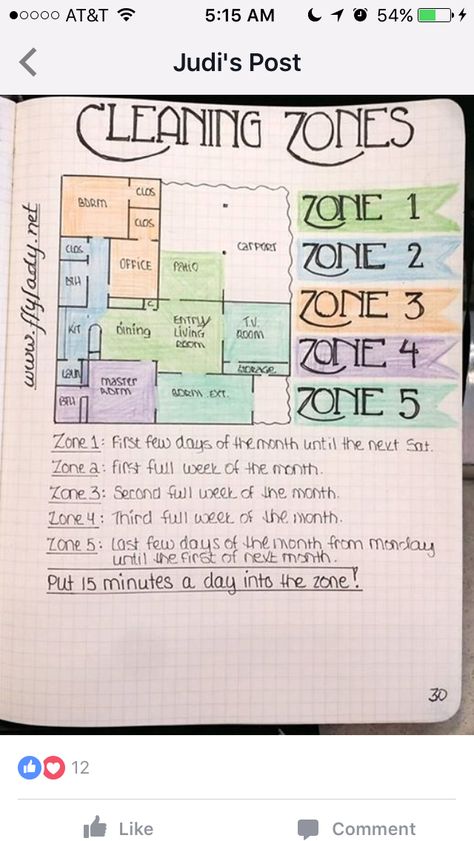 AT&T 5:15 AM 54%
Judi's Post
CLEANING ZONES
www.flylady.net
BDRM
CLOS
CLOS
CLOS
OFFICE
PATIO
CARPORT
BTH
C
KIT
dining
ENTRY/
LIVING
ROOM
T.V.
ROOM
STORAGE
LAUN
MASTER
BDRM
BDRM. EXT.
BTH
ZONE 1
ZONE 2
ZONE 3
ZONE 4
ZONE 5
Zone 1: First few days of the month until the next Sat.
Zone 2: first full week of the month.
Zone 3: Second full week of the month.
Zone 4: Third full week of the month.
Zone 5: Last few days of the month from monday
until the first of next month.
Put 15 minutes a day into the zone!
30
12
Like Comment